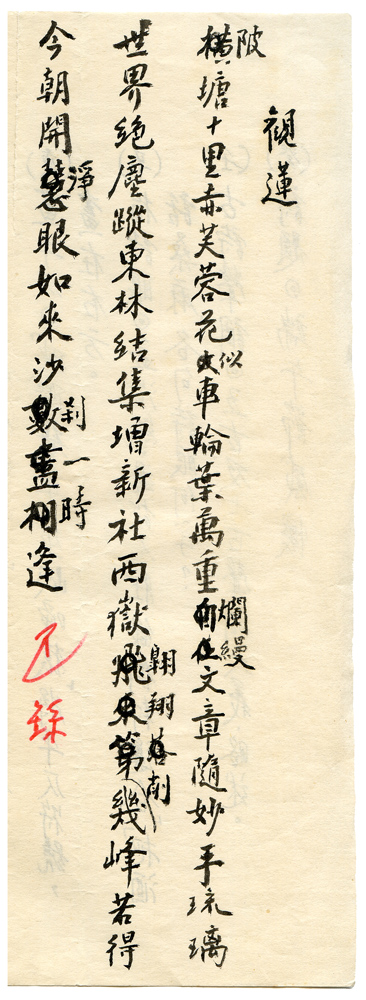 觀蓮
陂
橫塘十里赤芙蓉花似車輪葉萬重爛縵文章隨妙手琉璃
世界絕塵蹤東林結集增新社西嶽飛來第幾峰若得
翱翔
削
今朝開慧眼如來沙數盡相逢
淨
刹一時
不錄